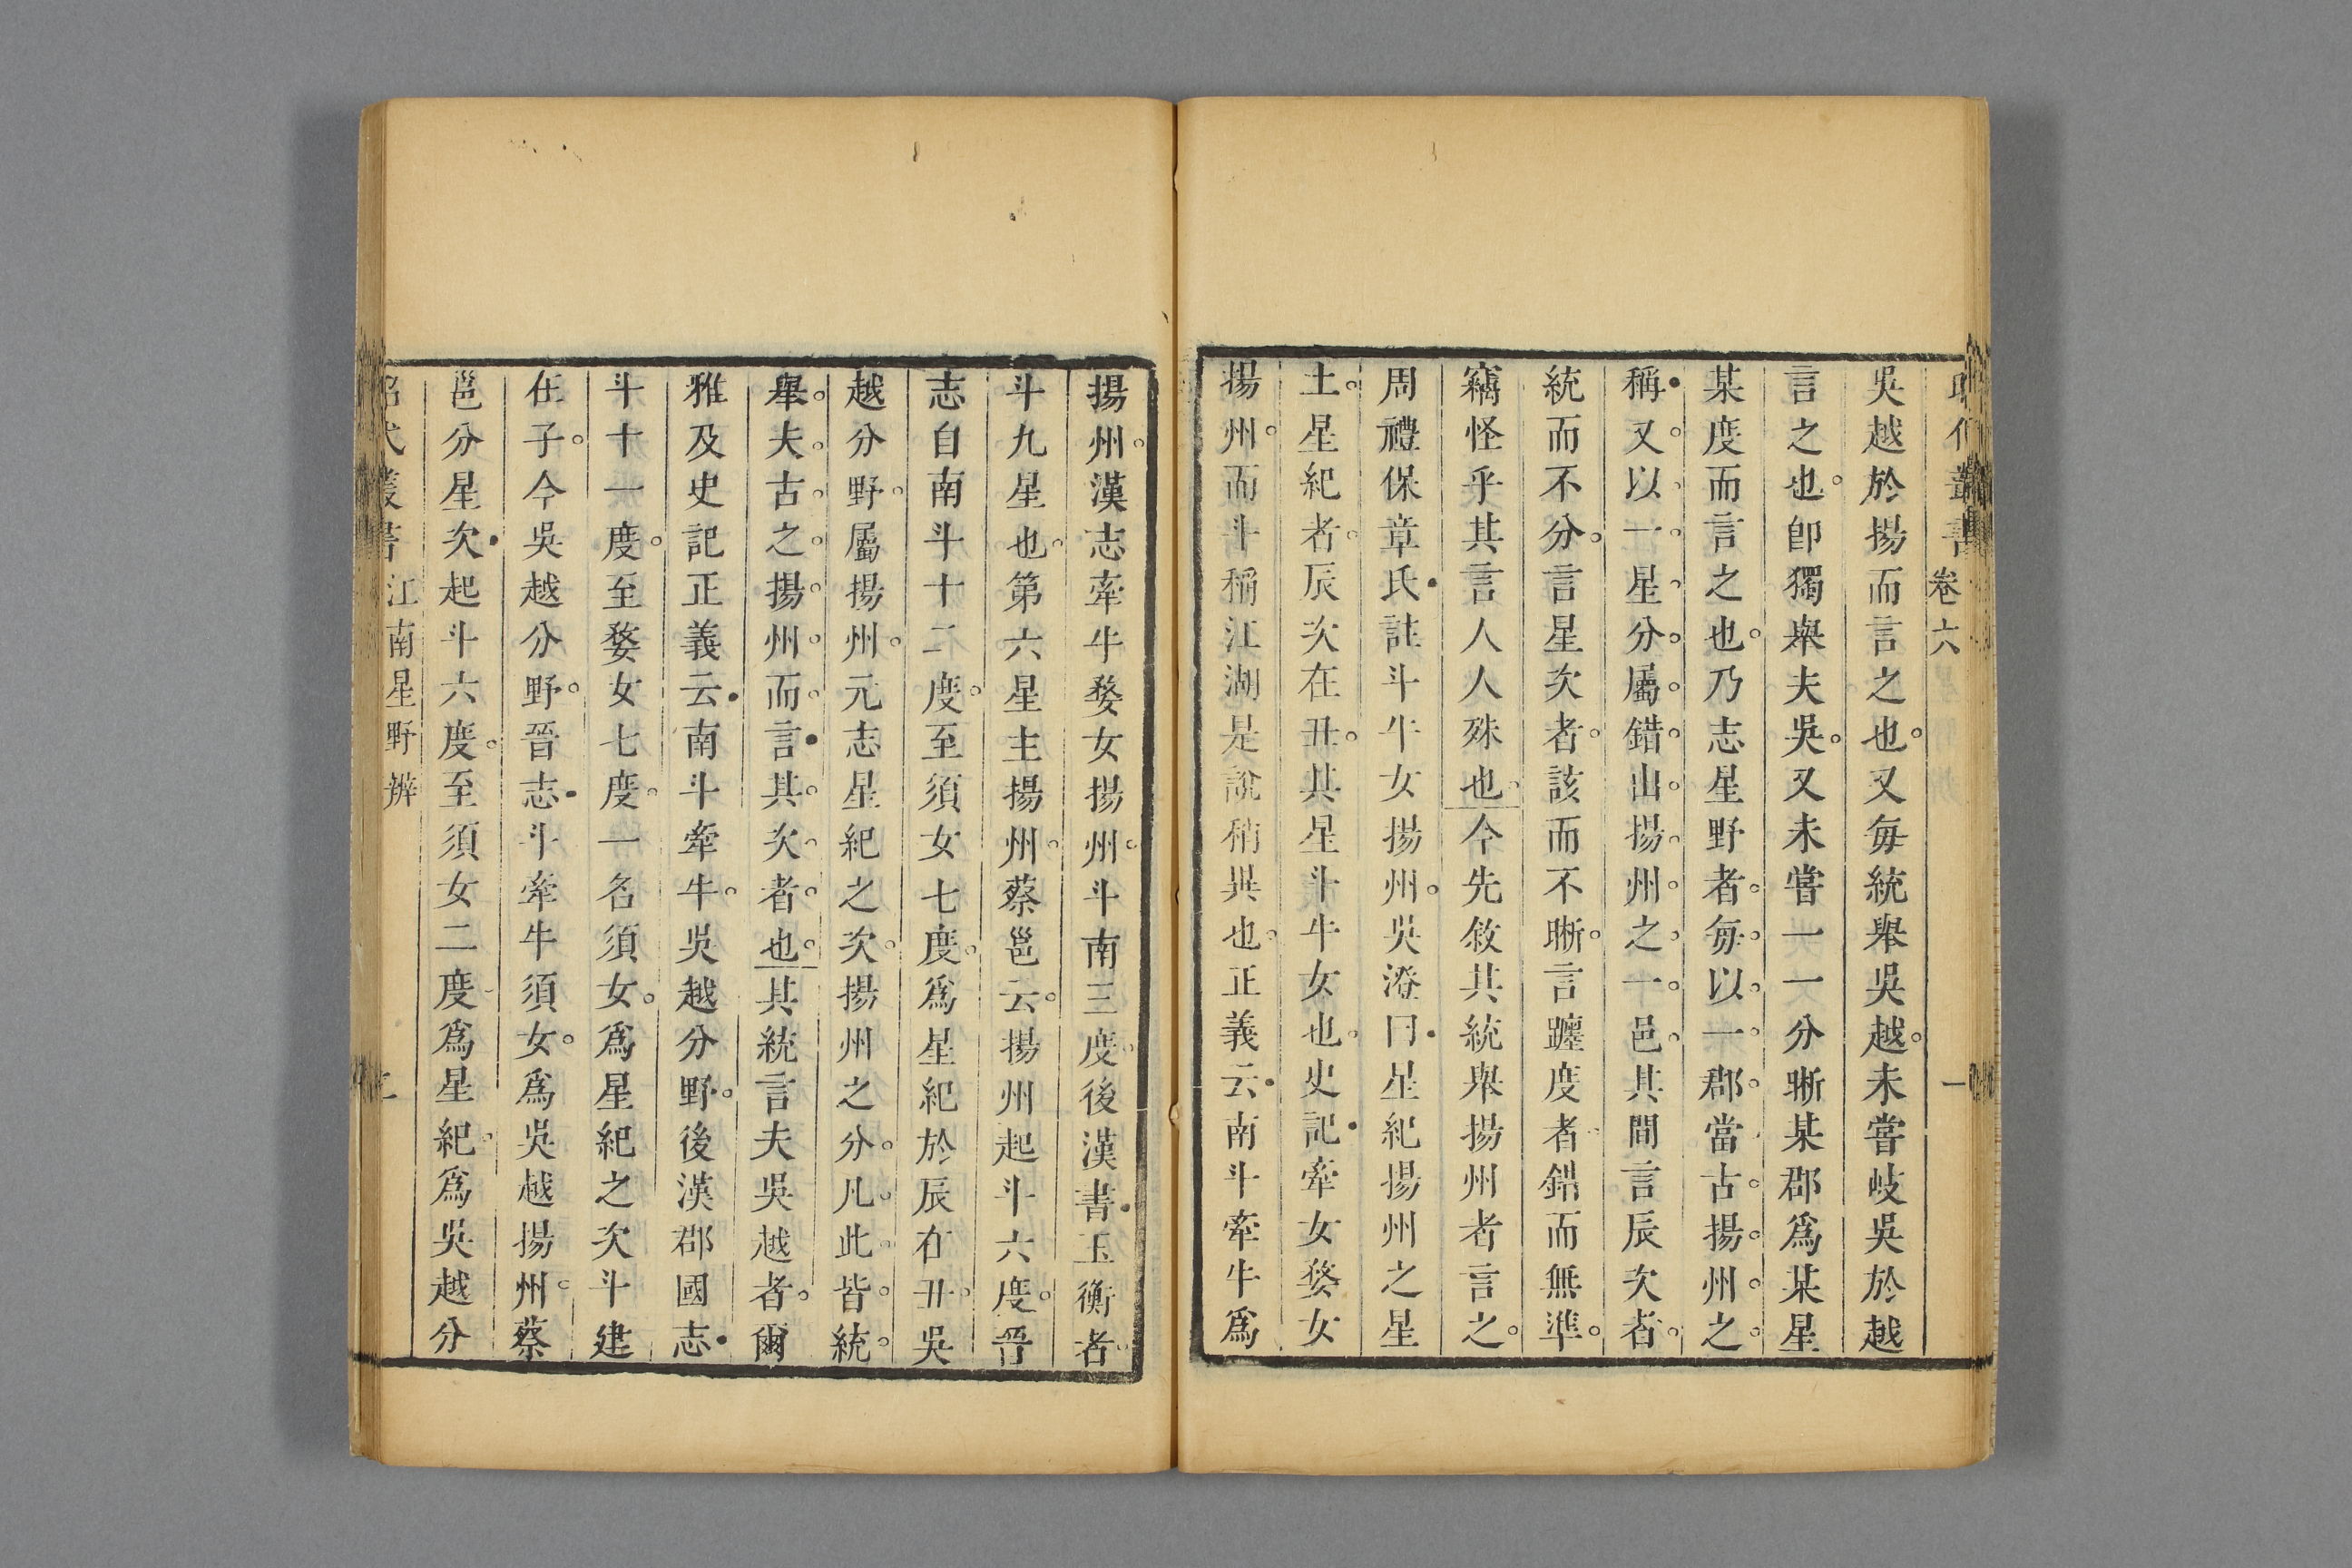 卷六
一
吳越於揚而言之也又每統舉吳越未嘗岐吳於越
言之也卽獨舉夫吳又未嘗一一分晰某郡爲某星
某度而言之也乃志星野者每以一郡當古揚州之
稱又以一星分屬錯出揚州之一邑其間言辰次者
統而不分言星次者該而不晰言躔度者錯而無準
竊怪乎其言人人殊也今先敘其統舉揚州者言之
周禮保章氏註斗牛女揚州吳澄曰星紀揚州之星
土星紀者辰次在丑其星斗牛女也史記牽女婺女
揚州而斗稱江湖是說稍異也正義云南斗牽牛爲
揚州漢志牽牛婺女揚州斗南三度後漢書玉衡者
斗九星也第六星主揚州蔡邕云揚州起斗六度晉
志自南斗十二度至須女七度爲星紀於辰在丑吳
越分野屬揚州元志星紀之次揚州之分凡此皆統
舉夫古之揚州而言其次者也其統言夫吳越者爾
雅及史記正義云南斗牽牛吳越分野後漢郡國志
斗十一度至婺女七度一名須女爲星紀之次斗建
在子今吳越分野晉志斗牽牛須女爲吳越揚州蔡
邕分星次起斗六度至須女二度爲星紀爲吳越分
江南星野辨